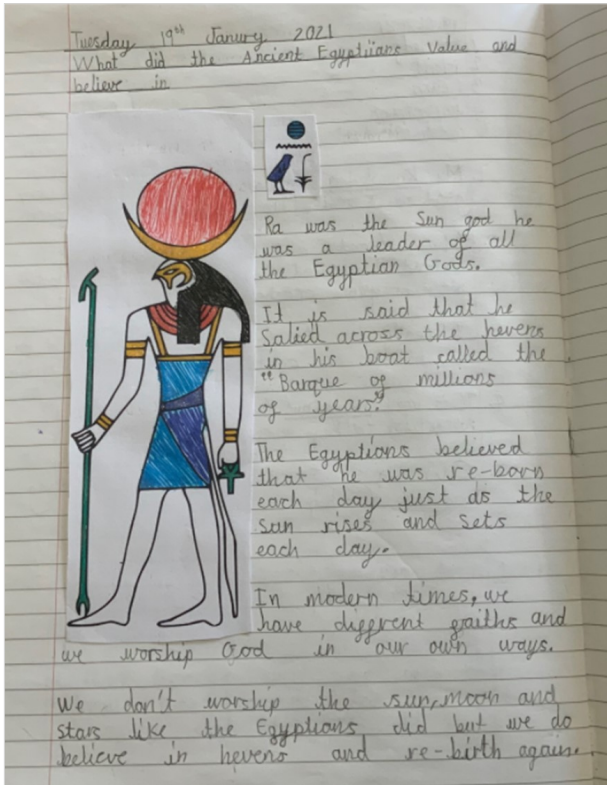 Tuesday 19th Janury 2021
What did the Ancient Egyptiians Value and
believe in
Ra was the Sun god he
was a leader of all
the Egyptian Gods.
It is said that he
Salied across the hevens
in his boat called the
"Barque of millions
of years".
The Egyptions believed
that he was re-born
each day just as the
sun rises and sets
each day.
In modern times, we
have different faiths and
we worship God in our own ways.
We don't worship the sun, moon and
stars like the Egyptions did but we do
believe in hevens and re-birth again.